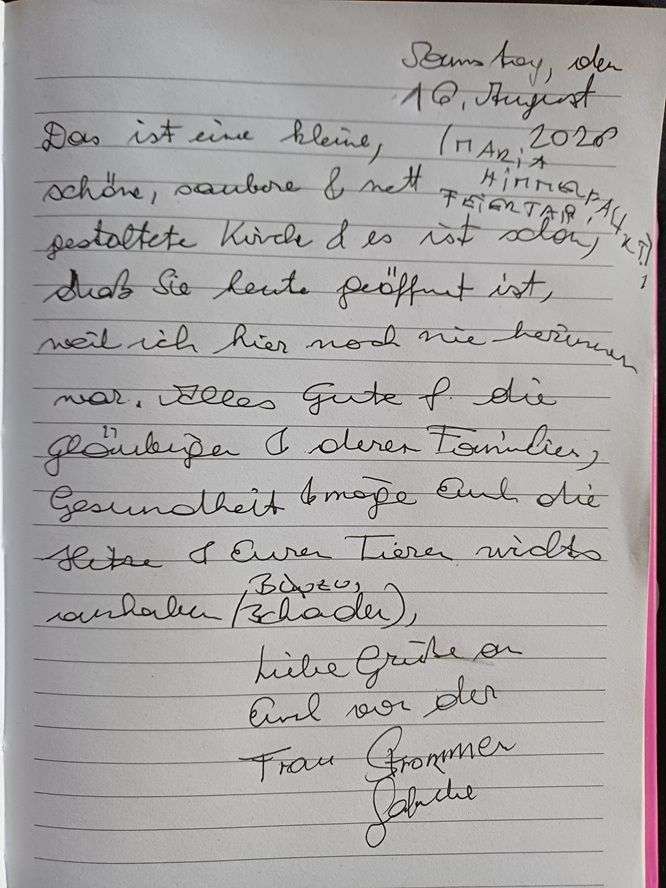 Samstag, den
16. August
2025
Das ist eine kleine,
(MARIA
HIMMELFAHRT)
FEIERTAG,
schöne, saubere & nett
gestaltete Kirche & es ist schön,
daß Sie heute geöffnet ist,
weil ich hier noch nie herinnen
war. Alles Gute f. die
gläubigen & deren Familien,
Gesundheit & möge Euch die
Hitze & Euren Tieren nichts
anhaben (Schaden),
Liebe Grüße an
Euch von der
Frau Strommer